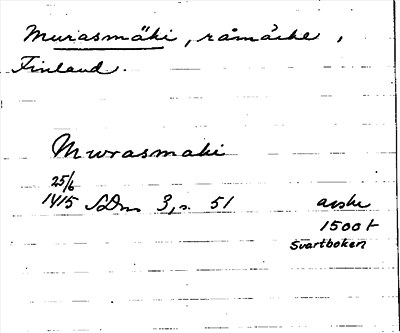 Murasmäki, råmärke,
Finland.
Murasmaki
25/6
1415 SDns 3, s. 51 avskr
1500 t
Svartboken